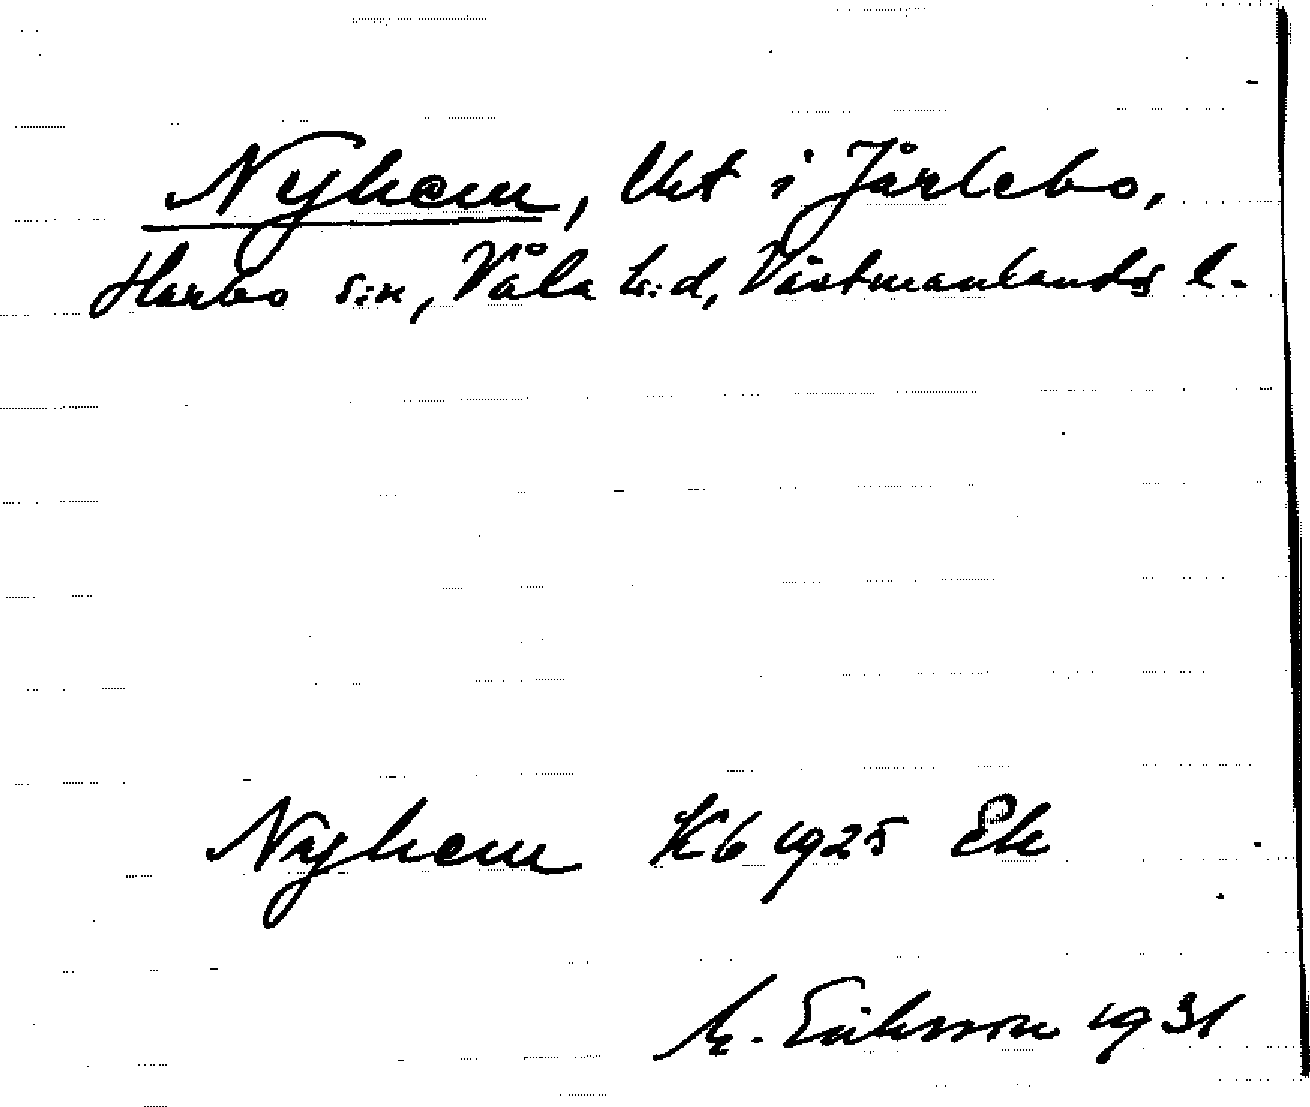 Nyhem, Uet i Järlebo,
Harbo s:n, Våla h:d, Västmanlands l.
Nyhem Kb 1925 Ek
M. Eriksson 1931